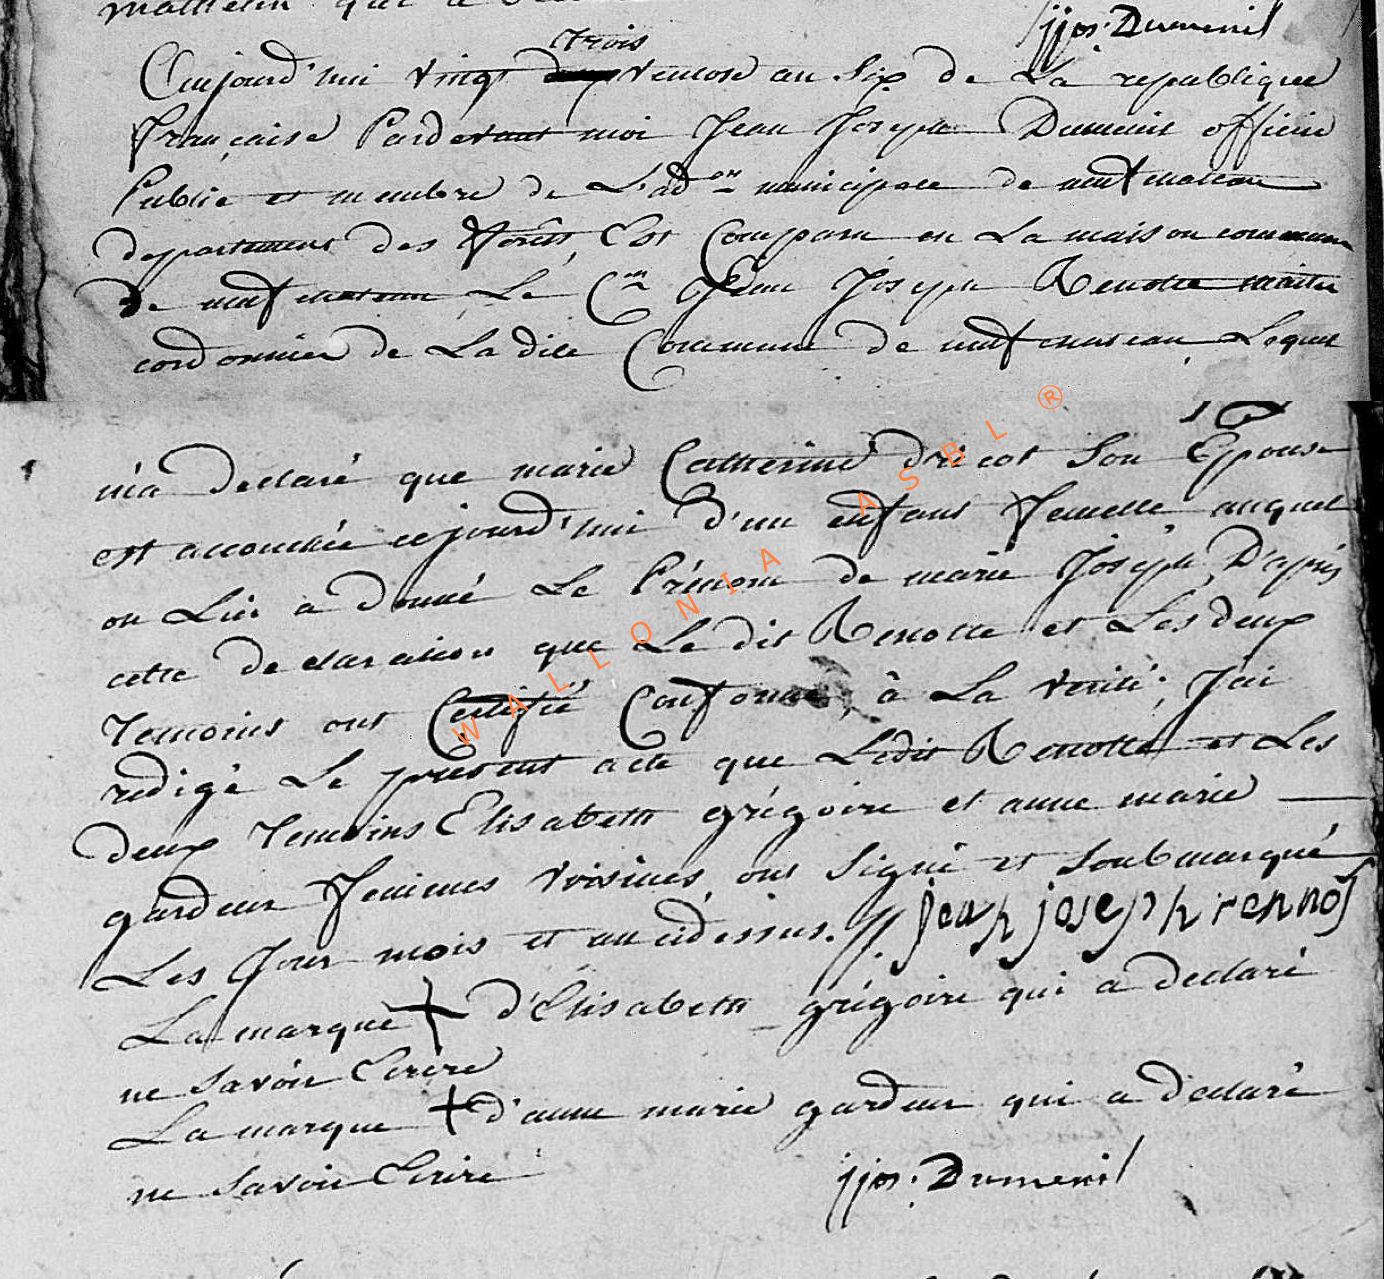 jjos. Dumenil
trois
Aujourd'hui vingt deux ventose an Six de La republique
française Pardevant moi Jean Joseph Dumenil officier
Public et membre de L'ad.on municipale de neufchateau
departement des forêts, Est Comparu en La maison commune
de neufchateau Le C.en Jean Joseph Renotte maitre
cordonnier de La dite Commune de neufchateau, Lequel
m'a Declaré que marie Catherine dricot Son Epouse
est accouchée cejourd'hui d'un enfant femelle auquel
on Lui a donné Le Prénom de marie Joseph, D'après
cette declaration que Le dit Renotte et Les deux
temoins ont Certifié Conforme, à La verité; J'ai
redigé Le present acte que Ledit Renotte et Les
deux temoins Elisabeth grégoire et anne marie
gardeur femmes voisines, ont Signé et soubmarqué
Les Jour mois et an cidessus. //. jean joseph rennot
La marque + d'Elisabeth grégoire qui a declaré
ne Savoir Ecrire
La marque + d'anne marie gardeur qui a declaré
ne Savoir Ecrire
jjos. Dumenil
WALLONIA ASBL ®